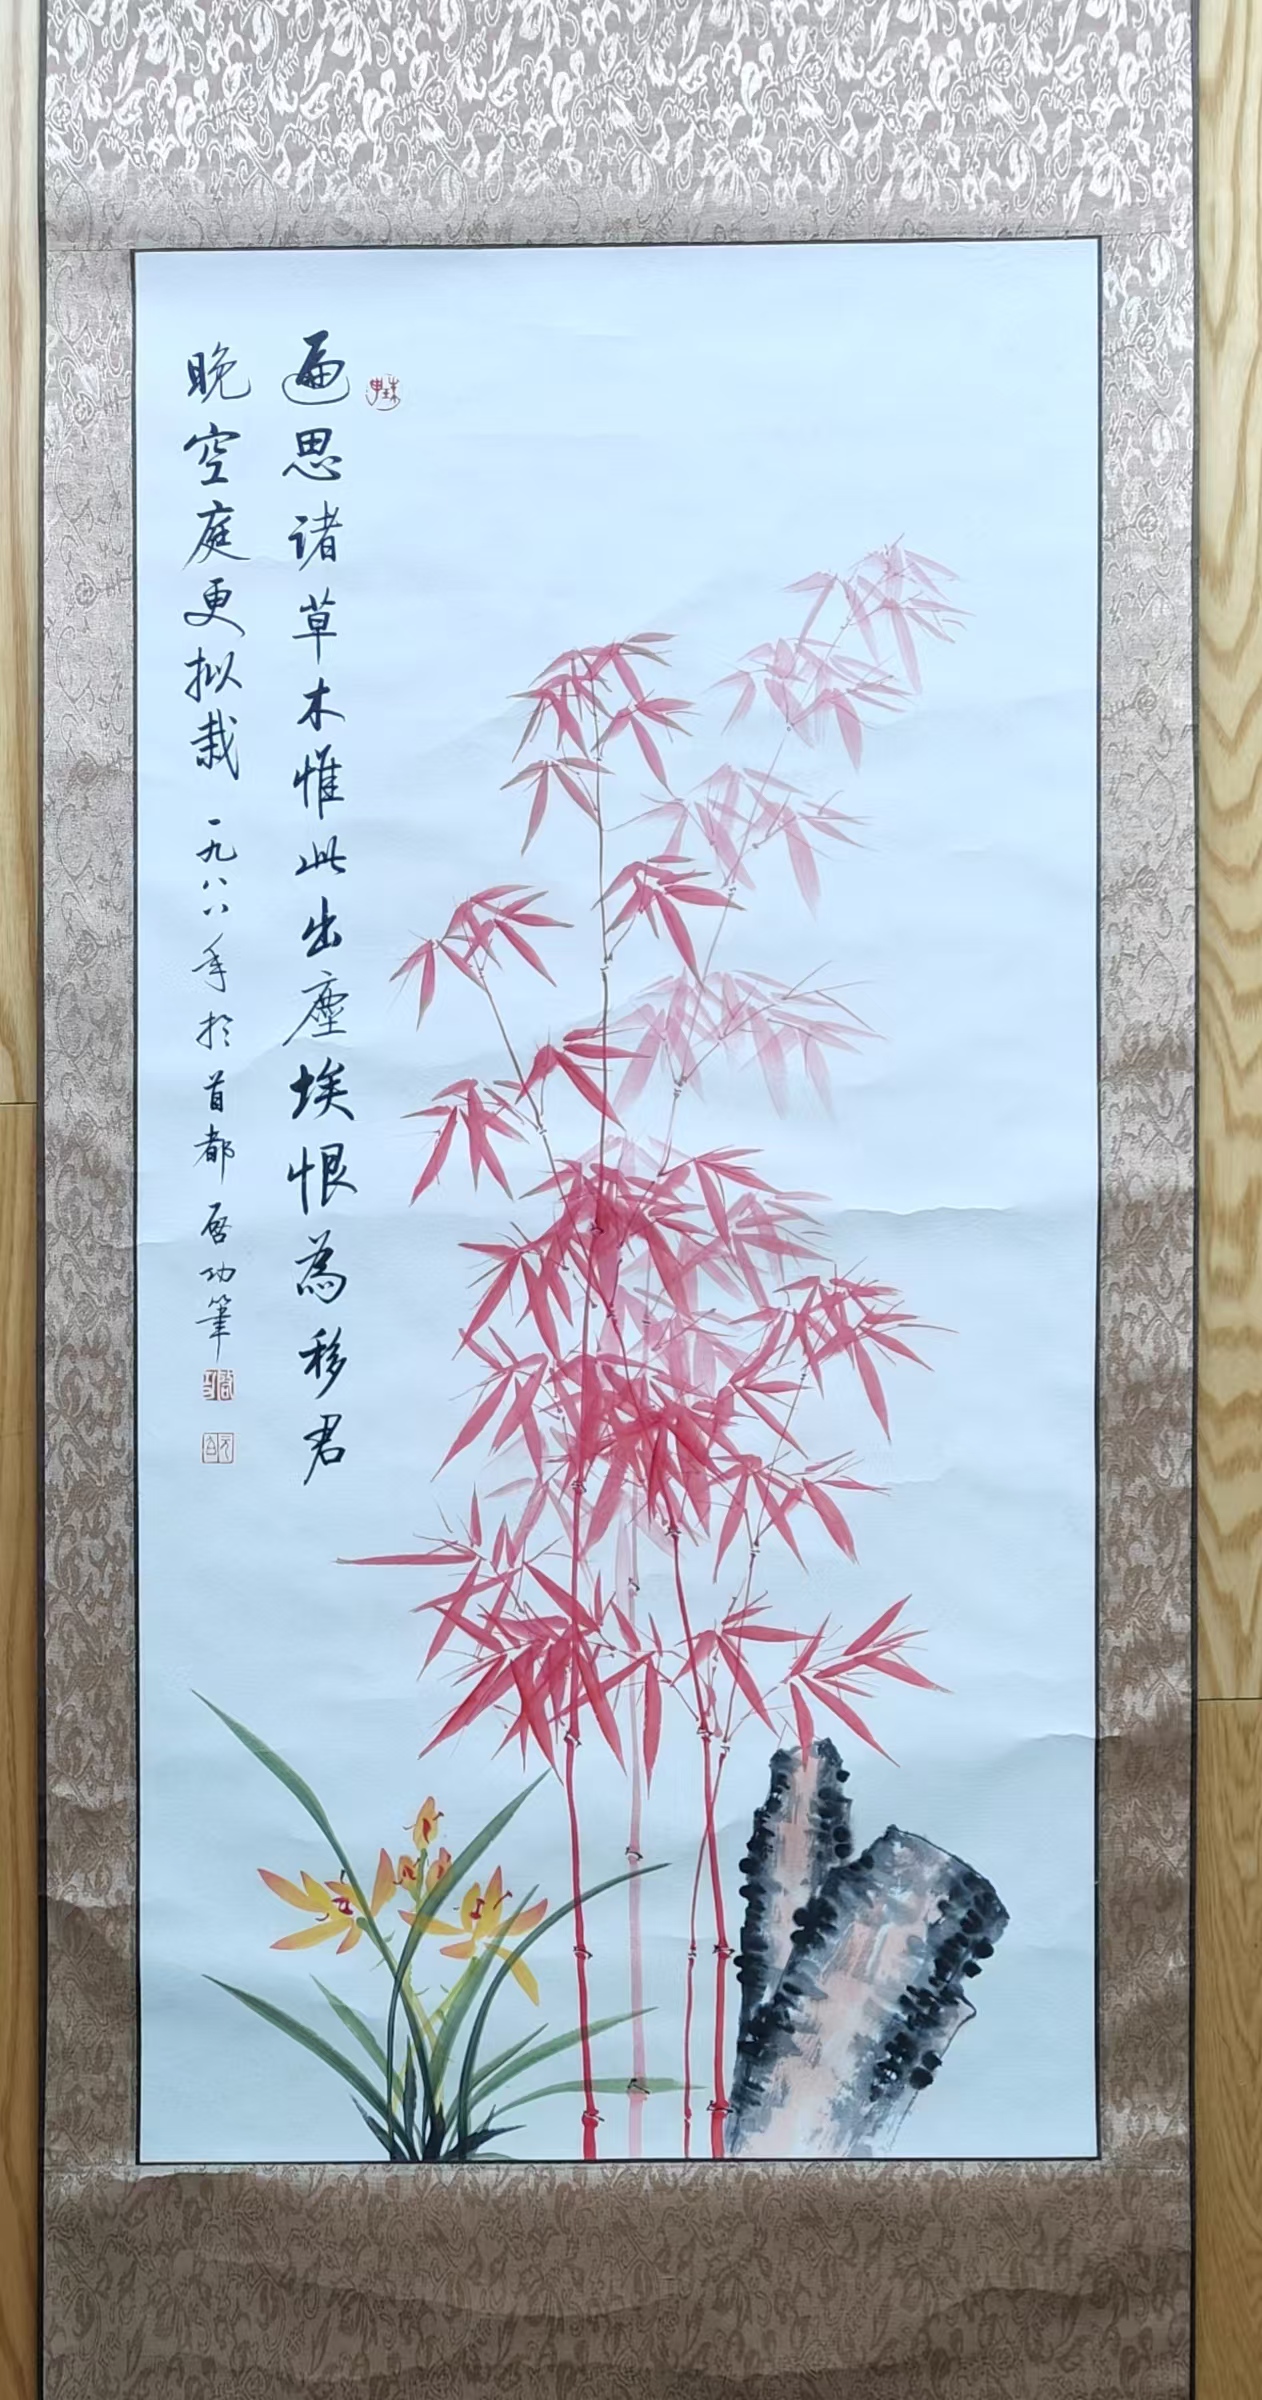 遍思诸草木惟此出塵埃恨為移君
晚空庭更拟栽一九八八年於首都启功筆
启功
元白